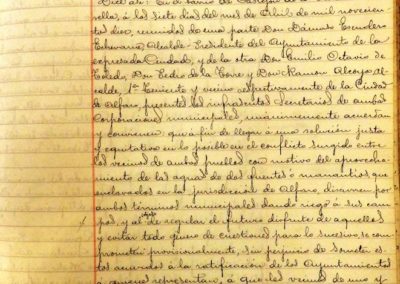 Diez: En el Barrio de Casas
rella, á los siete dias del mes de Abril de mil novecien
tos diez, reunidos de una parte Don Dámaso Escudero
Echevarria, Alcalde-Presidente del Ayuntamiento de la
expresada Ciudad, y de la otra Don Emilio Octavio de
Toledo, Don Pedro de la Torre y Don Ramon Alcoya, Al
calde, 1er Teniente y vecino respectivamente de la Ciudad
de Alfaro, presentes los infrascritos Secretarios de ambas
Corporaciones municipales, unánimemente acuerdan
y convienen que á fin de llegar á una solución justa
y equitativa en lo posible en el conflicto surgido entre
los vecinos de ambos pueblos con motivo del aprovecha
miento de las aguas de dos fuentes ó manantios que
enclavados en la jurisdiccion de Alfaro, discurren por
ambos términos municipales dando riego á sus cam
pos, y al de regular el futuro disfrute de aquellos
y evitar todo genero de cuestiones para lo sucesivo, se com
prometen provisionalmente, sin perjuicio de someter es
tos acuerdos á la ratificación de los Ayuntamientos
á quienes representan, á que los vecinos de uno y